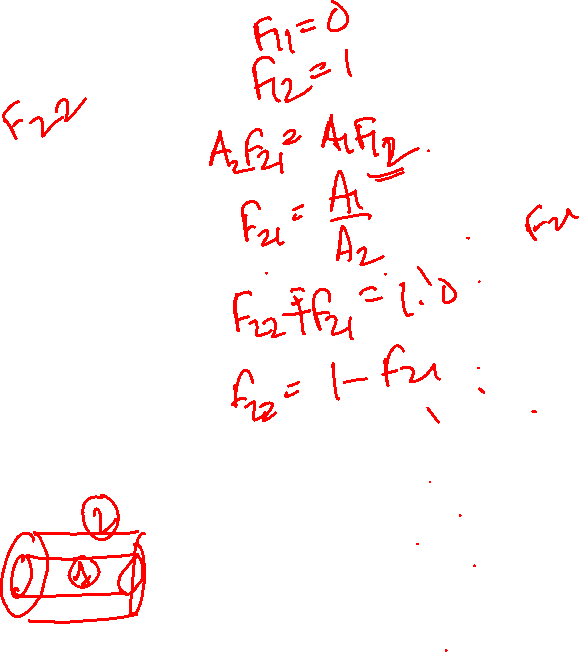 F11 = 0
F12 = 1
F22
A2F21 = A1F12
F21 = A1/A2
F21
F22 + F21 = 1.0
F22 = 1 - F21
2
1